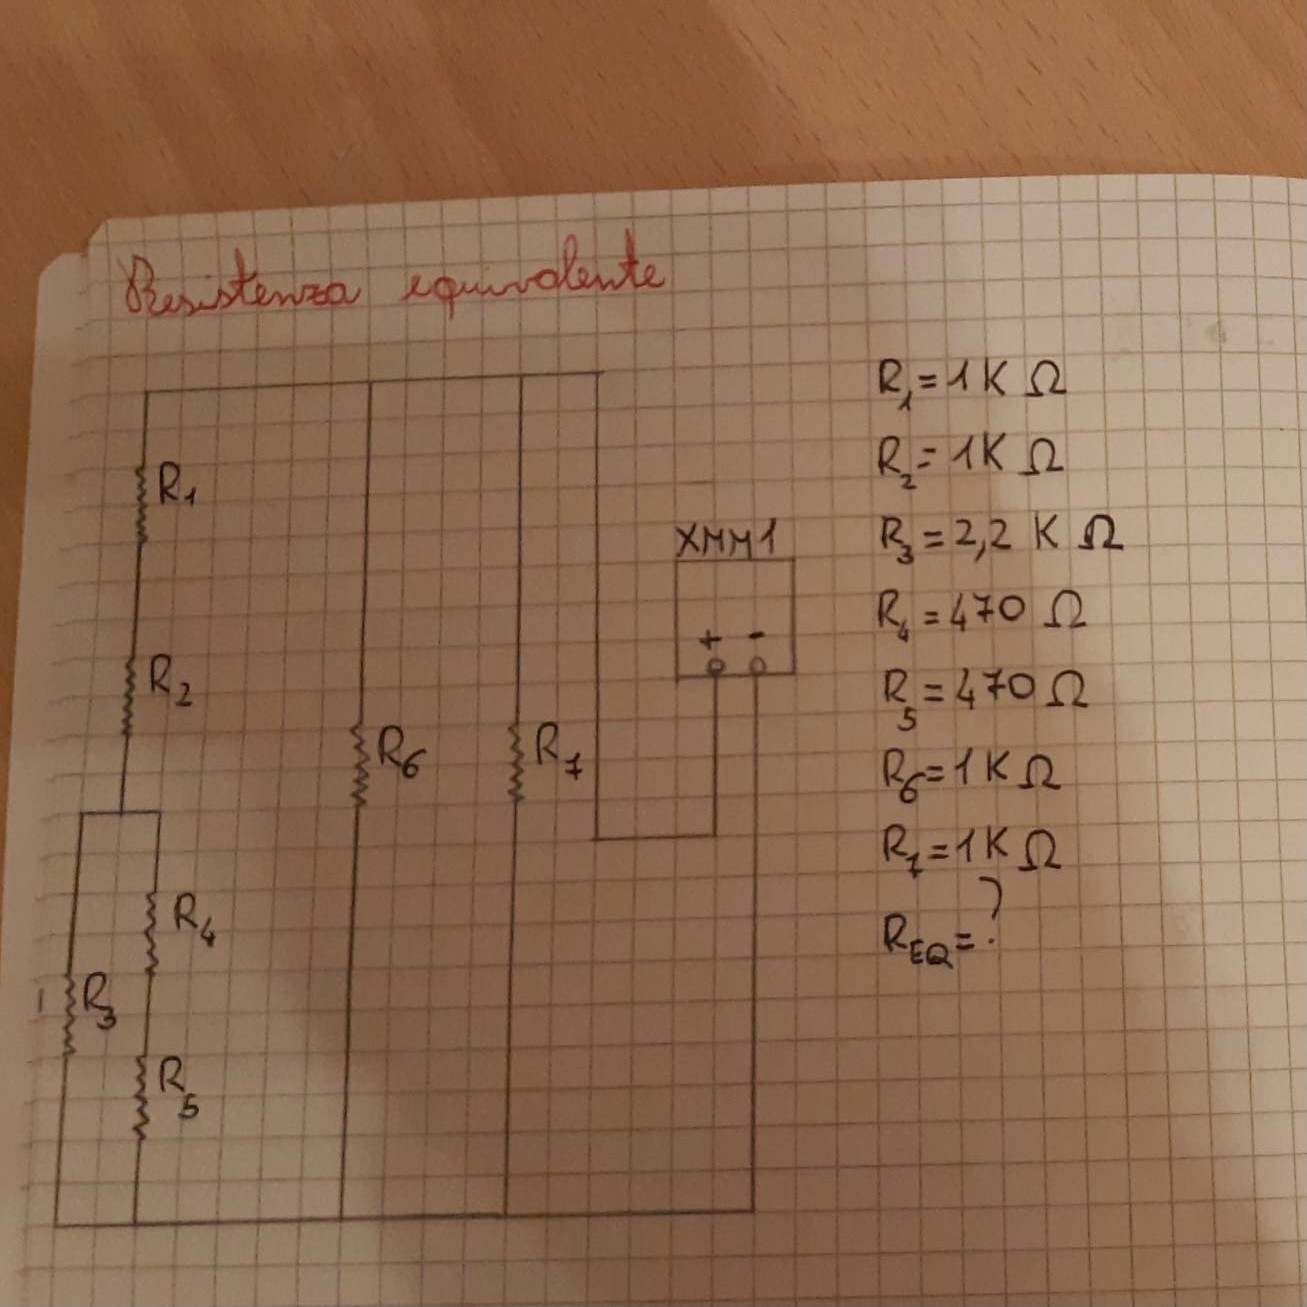 Resistenza equivalente
R1
R2
R3
R4
R5
R6
R7
XMM1
+ -
R1 = 1K Ω
R2 = 1K Ω
R3 = 2,2 K Ω
R4 = 470 Ω
R5 = 470 Ω
R6 = 1K Ω
R7 = 1K Ω
REQ = ?